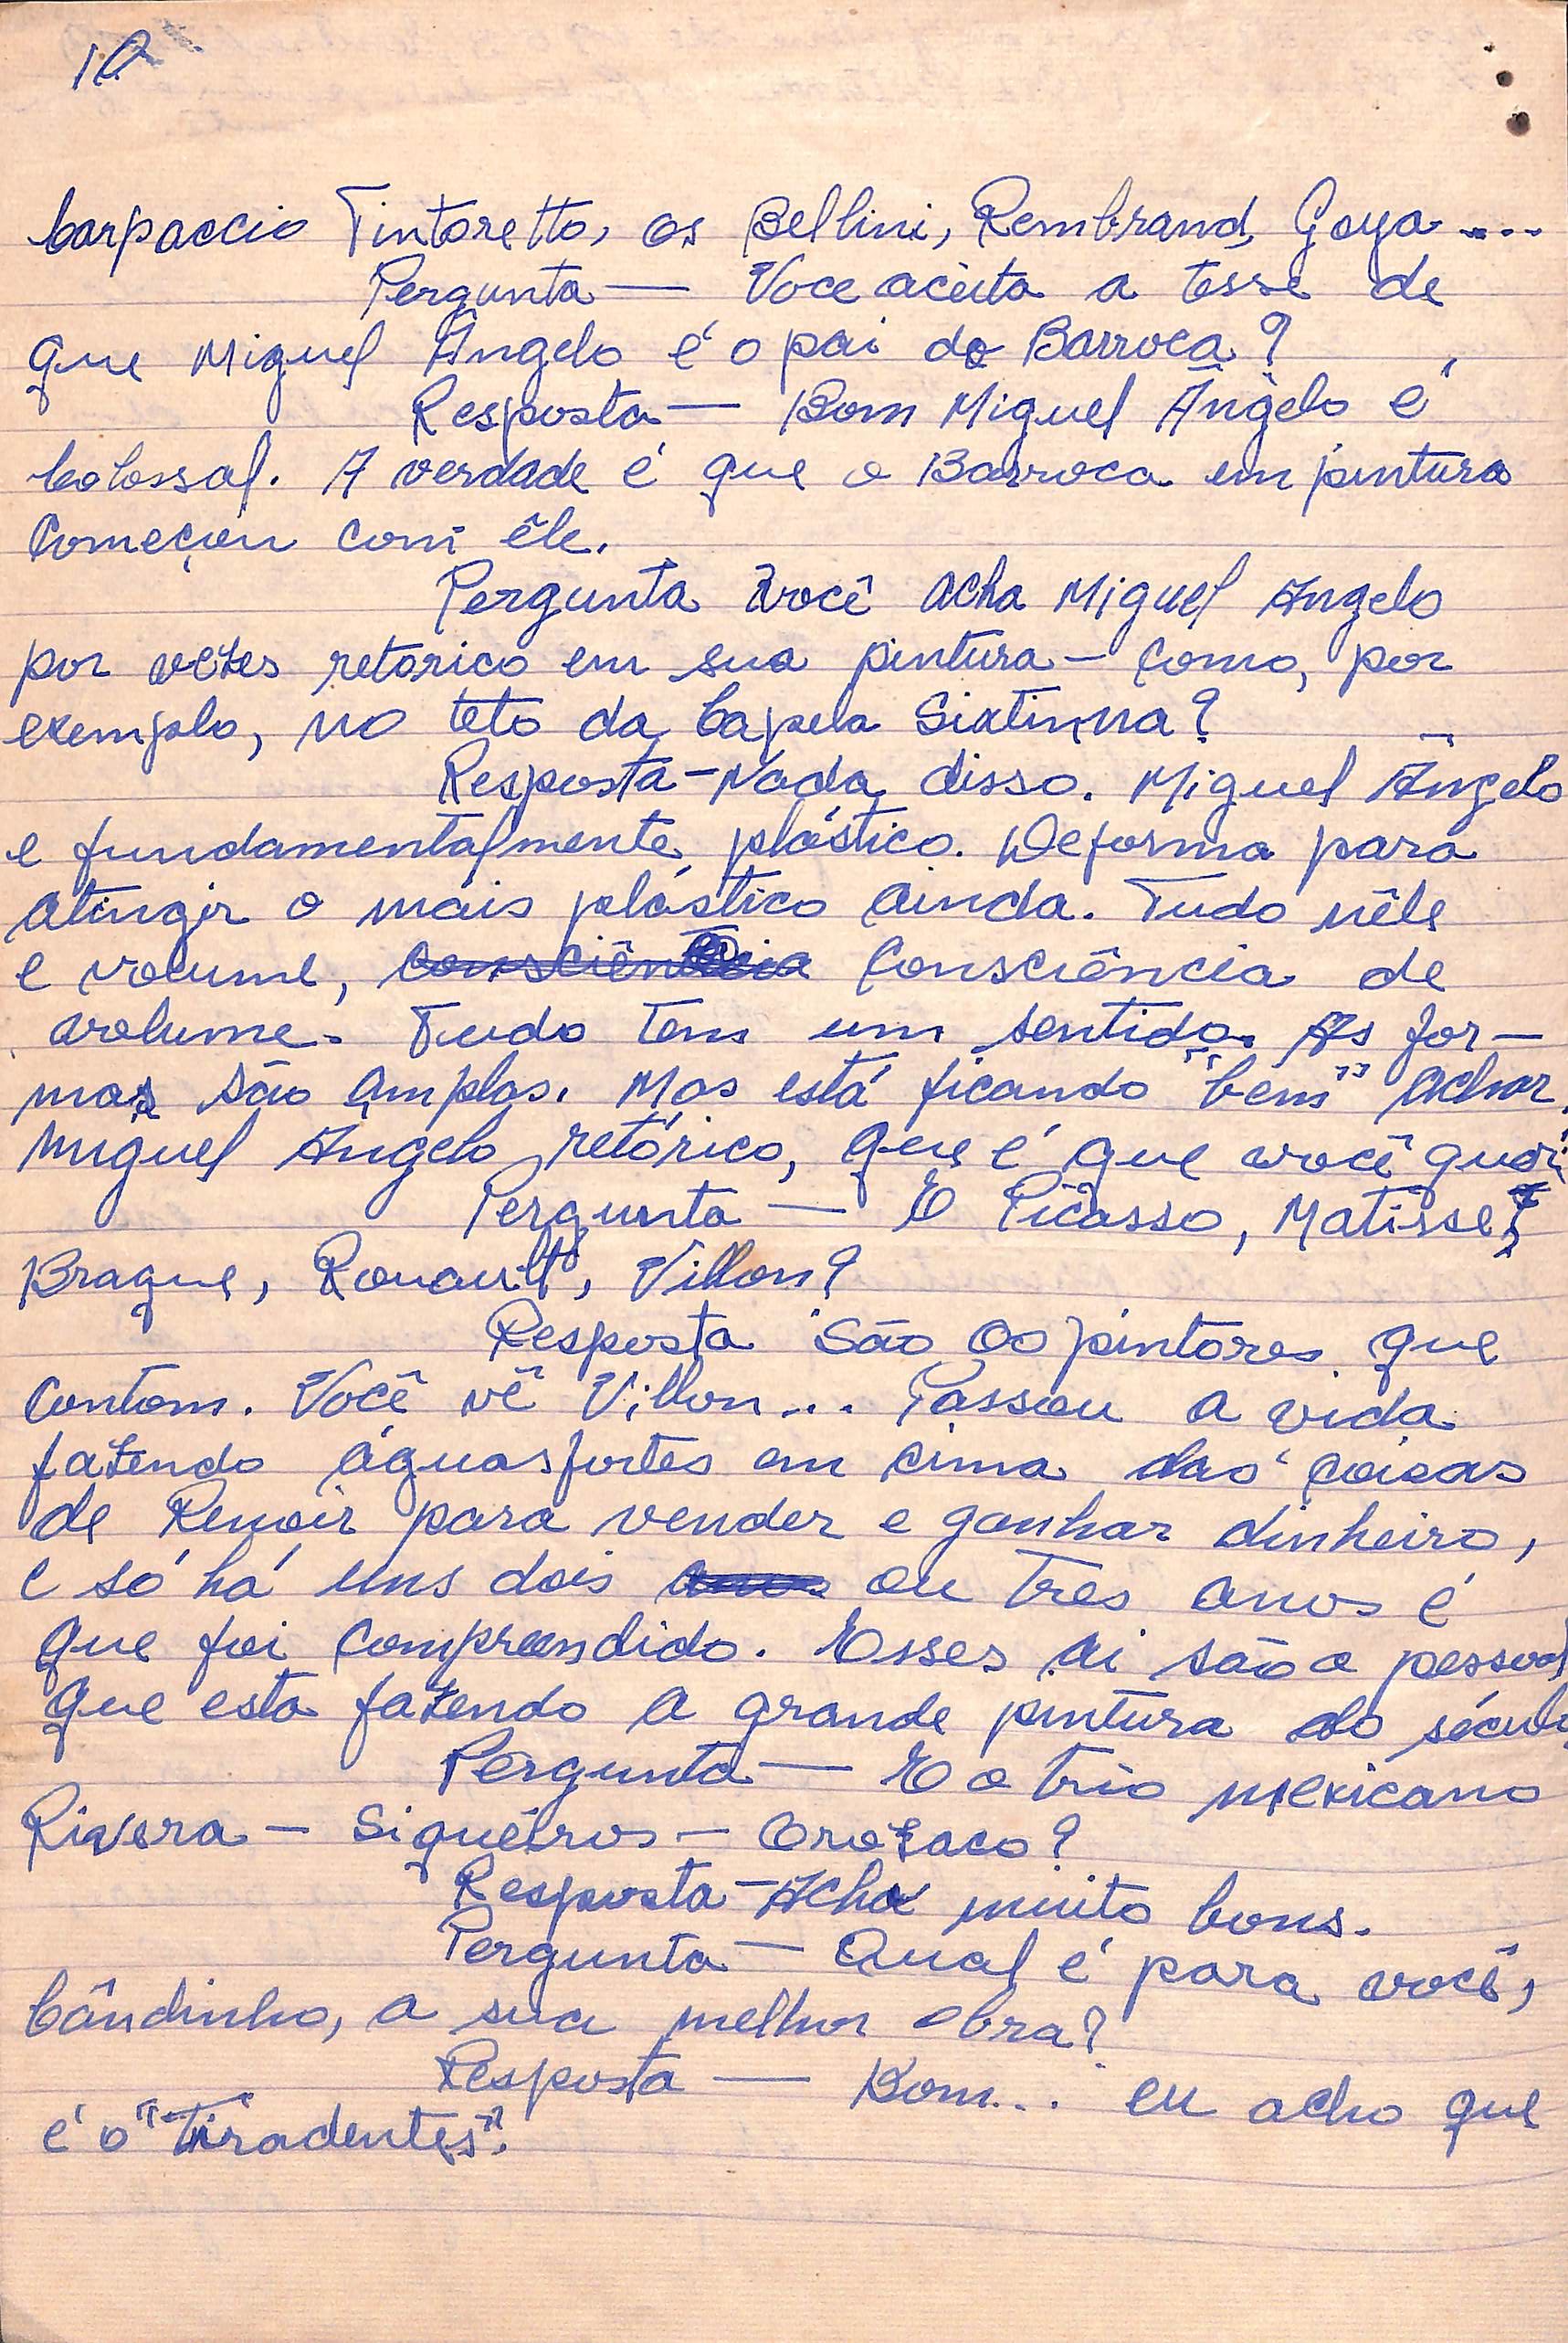 10
Carpaccio Tintoretto, os Bellini, Rembrand, Goya....
Pergunta — Voce aceita a tese de
que Miguel Ângelo é o pai do Barroco?
Resposta — Bom Miguel Ângelo é
Colossal. A verdade é que o Barroco em pintura
Começou com êle.
Pergunta você acha Miguel Angelo
por vezes retorico em sua pintura — como, por
exemplo, no teto da Capela Sixtinna?
Resposta — Nada disso. Miguel Ângelo
e fundamentalmente plástico. Deforma para
atingir o mais plástico ainda. Tudo nêle
e volume, consciência Consciência de
volume. Tudo tem um sentido. As for-
mas são amplas. Mas está ficando "bem" achar
Miguel Angelo retórico, que é que você quer?
Pergunta — E Picasso, Matisse,
Braque, Rouault, Villon?
Resposta São os pintores que
contam. Você vê Villon... Passou a vida
fazendo águasfortes em cima das coisas
de Renoir para vender e ganhar dinheiro,
e só há uns dois anos ou tres anos é
que foi compreendido. Esses ai são o pessoal
que esta fazendo a grande pintura do século
Pergunta — E o trio mexicano
Rivera — Siqueiros — Orozaco?
Resposta — Acho muito bons.
Pergunta — Qual é para você,
Cândinho, a sua melhor obra?
Resposta — Bom... eu acho que
é o "Tiradentes".